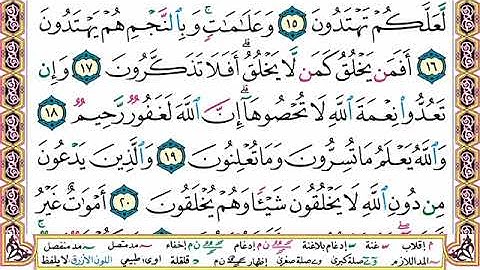 لَّعَلَّكُمْ تَهْتَدُونَ ١٥ وَعَلَـٰمَـٰتٍ ۚ وَبِالنَّجْمِ هُمْ يَهْتَدُونَ
١٦ أَفَمَن يَخْلُقُ كَمَن لَّا يَخْلُقُ ۗ أَفَلَا تَذَكَّرُونَ ١٧ وَإِن
تَعُدُّوا نِعْمَةَ اللَّهِ لَا تُحْصُوهَا ۗ إِنَّ اللَّهَ لَغَفُورٌ رَّحِيمٌ ١٨
وَاللَّهُ يَعْلَمُ مَا تُسِرُّونَ وَمَا تُعْلِنُونَ ١٩ وَالَّذِينَ يَدْعُونَ
مِن دُونِ اللَّهِ لَا يَخْلُقُونَ شَيْـًٔا وَهُمْ يُخْلَقُونَ ٢٠ أَمْوَٰتٌ غَيْرُ
م إقلاب س غنة س إدغام بلاغنة ن م إدغام ن م إخفاء مد متصل مد منفصل
المد اللازم صلة كبرى صلة صغرى إظهار ن م قلقلة اوى طبيعي اللون الأزرق لا يلفظ